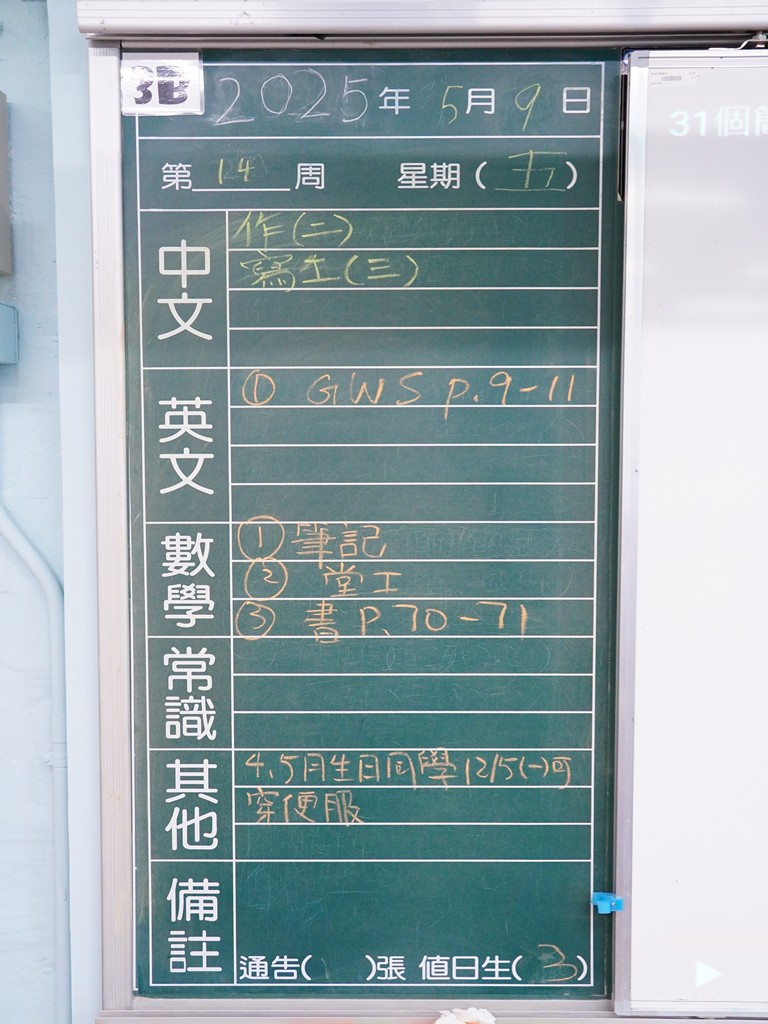 3B
2025年 5月 9日
第 14 周 星期(五)
中文
作(二)
寫工(三)
英文
① GWS p.9-11
數學
① 筆記
② 堂工
③ 書 P.70-71
常識
其他
4、5月生日同學12/5(一)可
穿便服
備註
通告( )張 值日生(3)
31個